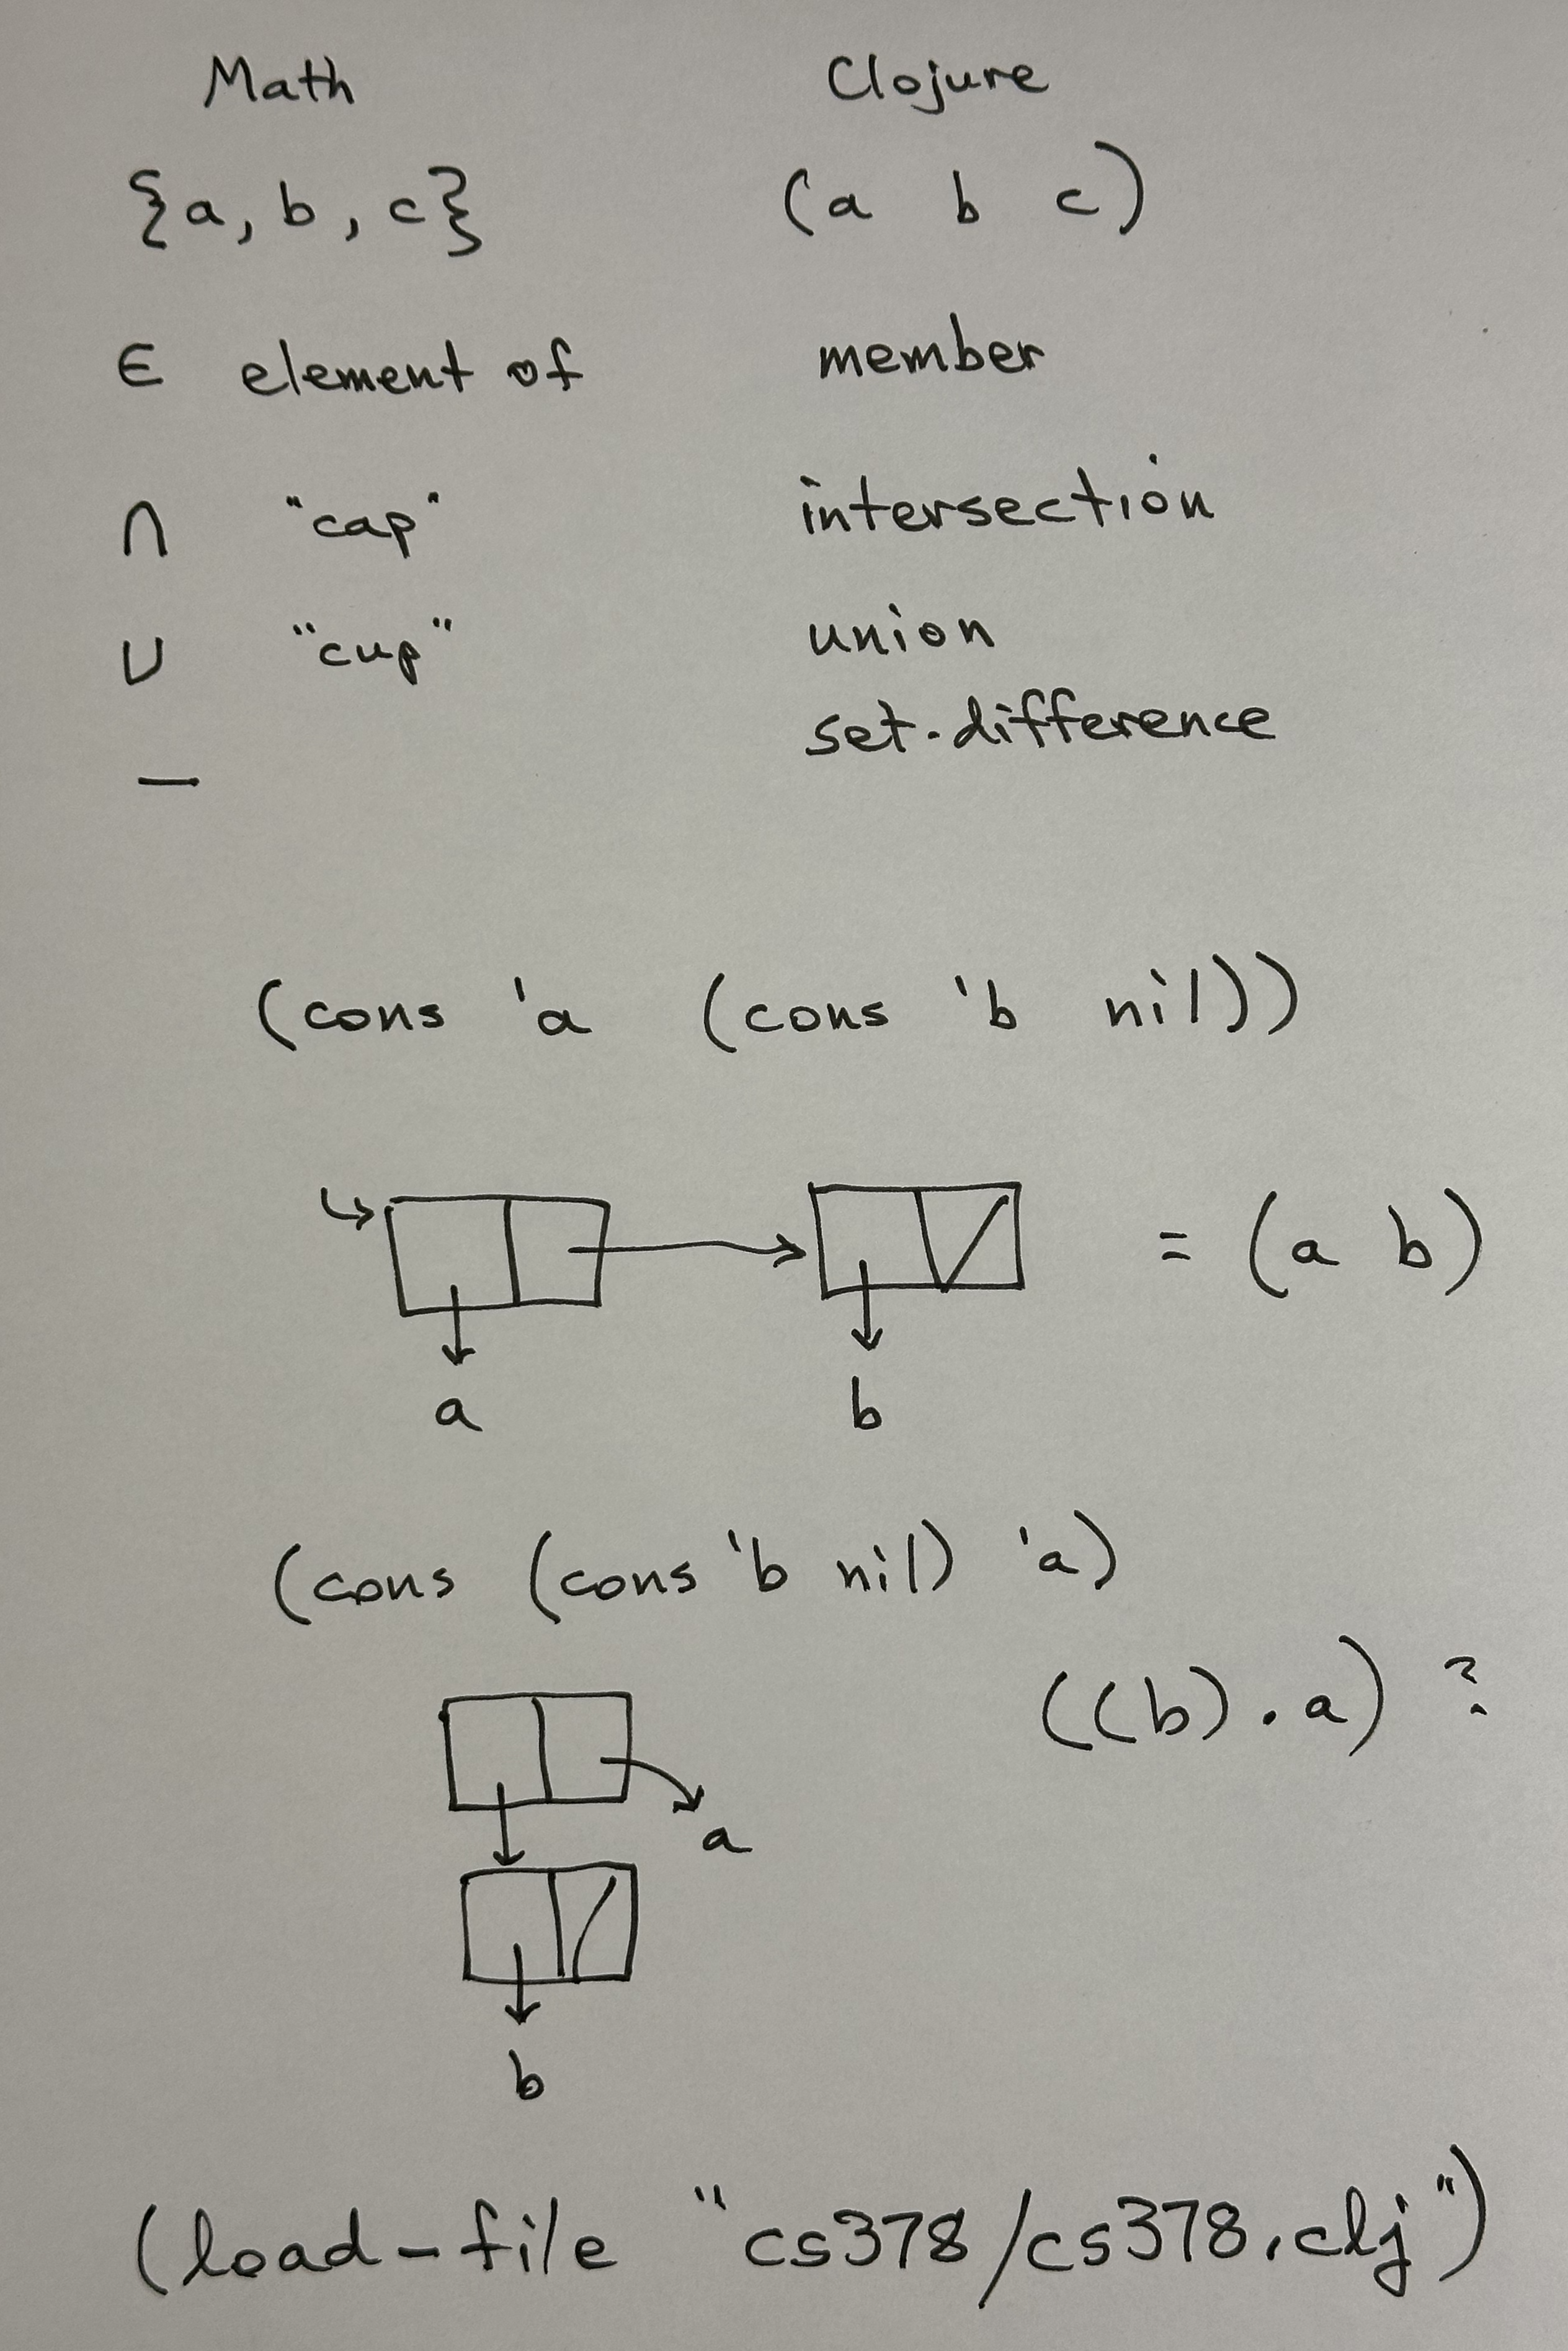 Math Clojure
{a, b, c} (a b c)
∈ element of member
∩ "cap" intersection
∪ "cup" union
— set-difference
(cons 'a (cons 'b nil))
= (a b)
a b
(cons (cons 'b nil) 'a)
((b) . a) ?
a
b
(load-file "cs378/cs378.clj")